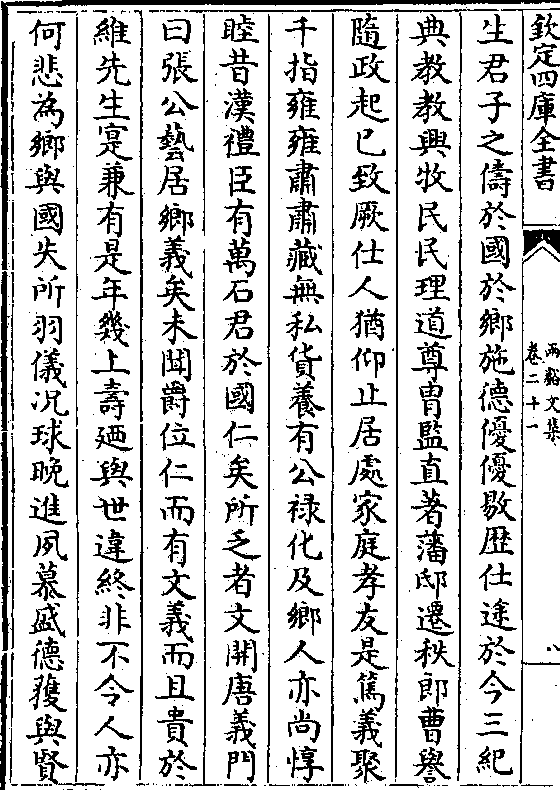 欽定四庫全書
兩谿文集
卷二十一
八
生君子之儔於國於鄉施德優優敭歴仕途於今三紀
典教教興牧民民理道尊胄監直著藩邸遷秩郎曹譽
隨政起已致厥仕人猶仰止居處家庭孝友是篤義聚
千指雍雍肅肅藏無私貨養有公禄化及鄉人亦尚惇
睦昔漢禮臣有萬石君於國仁矣所乏者文開唐義門
曰張公藝居鄉義矣未聞爵位仁而有文義而且貴於
維先生寔兼有是年幾上壽廼與世違終非不令人亦
何悲為鄉與國失所羽儀況球晚進夙慕盛德獲與賢